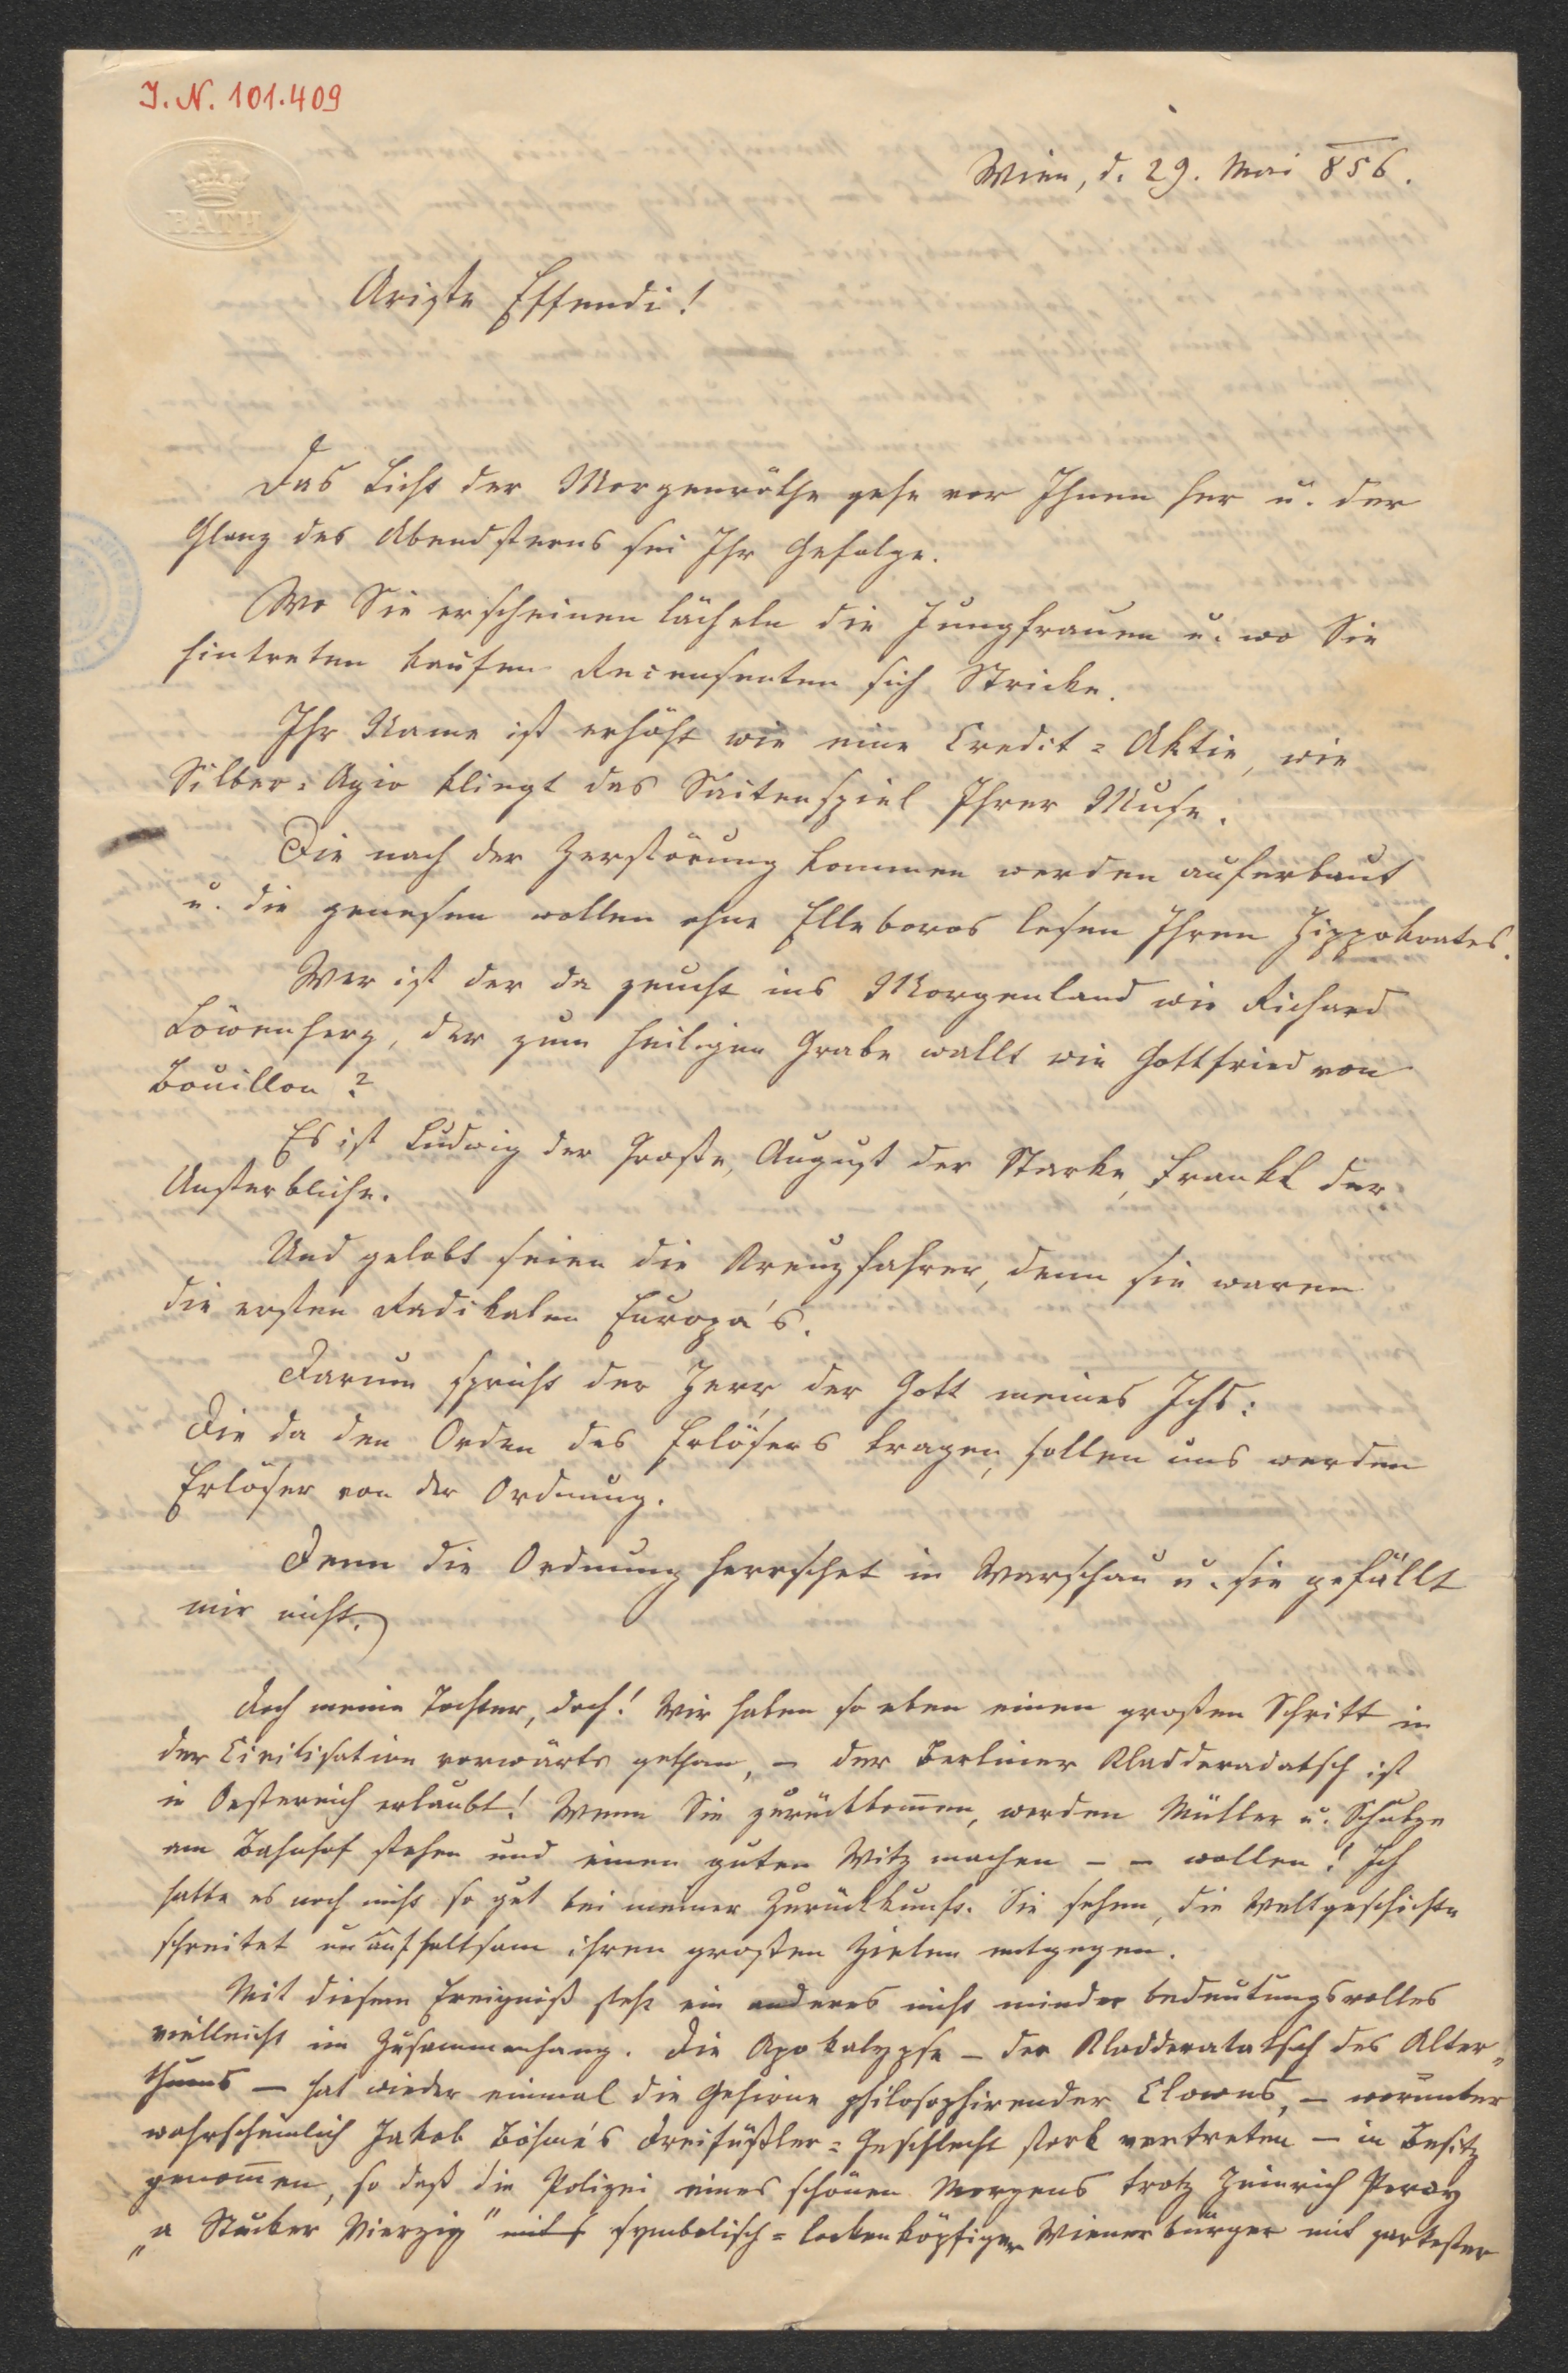 I. N. 101.409
BATH
Wien, d. 29. Mai 856.
Ariste Effendi!
Das Licht der Morgenröthe gehe vor Ihnen her u. der
Glanz des Abendsterns sei Ihr Gefolge.
Wo Sie erscheinen lächeln die Jungfrauen u. wo Sie
hintreten kaufen Recensenten sich Stricke.
Ihr Name ist erhöht wie eine Credit-Aktie, wie
Silber-Agio klingt das Saitenspiel Ihrer Muse.
Die nach der Zerstörung kommen werden auferbaut
u. die genesen wollen ohne Elleboros lesen Ihren Hippokrates.
Wer ist der da zeucht ins Morgenland wie Richard
Löwenherz, der zum heiligen Grabe wallt wie Gottfried von
Bouillon?
Es ist Ludwig der Große, August der Starke, Frankl der
Unsterbliche.
Und gelobt seien die Kreuzfahrer, denn sie waren
die ersten Radikalen Europa's.
Darum spricht der Herr, der Gott meines Ichs:
Die da den Orden des Erlösers tragen, sollen uns werden
Erlöser von der Ordnung.
Denn die Ordnung herrschet in Warschau u. sie gefällt
mir nicht.
Doch meine Tochter, doch! Wir haben so eben einen großen Schritt in
der Civilisation vorwärts gethan, – der Berliner Kladderadatsch ist
in Oesterreich erlaubt! Wenn Sie zurückkommen, werden Müller u. Schulze
am Bahnhof stehen und einen guten Witz machen – – wollen! Ich
hatte es noch nicht so gut bei meiner Zurückkunft. Sie sehen, die Weltgeschichte
schreitet unaufhaltsam ihren großen Zielen entgegen.
Mit diesem Ereigniß steht ein anderes nicht minder bedeutungsvolles
vielleicht im Zusammenhang. Die Apokalypse – der Kladderatatsch des Alter-
thums – hat wieder einmal die Gehirne philosophirender Clowns, – worunter
wahrscheinlich Jakob Böhme's Dreifüßler-Geschlecht stark vertreten – in Besitz
genommen, so daß die Polizei eines schönen Morgens trotz Heinrich
„a Stucker Vierzig" symbolisch-lockenköpfiger Wienerbürger mit